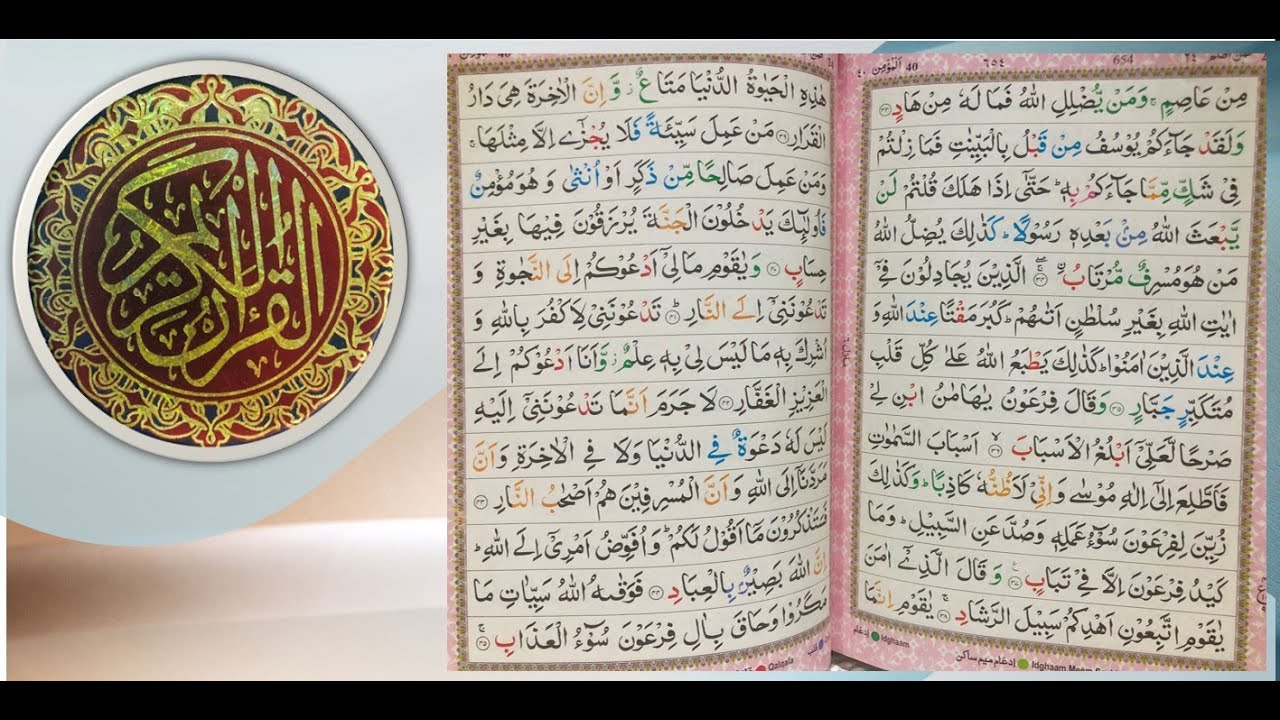 القرآن الكريم
٤٠ اَلْمُؤْمِن 40 ٦٥٤ 654 ٢٤
مِنْ عَاصِمٍ ۚ وَمَنْ يُّضْلِلِ اللّٰهُ فَمَا لَهٗ مِنْ هَادٍ ﴿۳۳﴾
وَلَقَدْ جَآءَكُمْ يُوْسُفُ مِنْ قَبْلُ بِالْبَيِّنٰتِ فَمَا زِلْتُمْ
فِيْ شَكٍّ مِّمَّا جَآءَكُمْ بِهٖ ؕ حَتّٰٓى اِذَا هَلَكَ قُلْتُمْ لَنْ
يَّبْعَثَ اللّٰهُ مِنْۢ بَعْدِهٖ رَسُوْلًا ؕ كَذٰلِكَ يُضِلُّ اللّٰهُ
مَنْ هُوَ مُسْرِفٌ مُّرْتَابُ ﴿۳۴﴾ الَّذِيْنَ يُجَادِلُوْنَ فِيْٓ
اٰيٰتِ اللّٰهِ بِغَيْرِ سُلْطٰنٍ اَتٰىهُمْ ؕ كَبُرَ مَقْتًا عِنْدَ اللّٰهِ وَ
عِنْدَ الَّذِيْنَ اٰمَنُوْا ؕ كَذٰلِكَ يَطْبَعُ اللّٰهُ عَلٰى كُلِّ قَلْبِ
مُتَكَبِّرٍ جَبَّارٍ ﴿۳۵﴾ وَقَالَ فِرْعَوْنُ يٰهَامٰنُ ابْنِ لِيْ
صَرْحًا لَّعَلِّيْٓ اَبْلُغُ الْاَسْبَابَ ﴿۳۶﴾ اَسْبَابَ السَّمٰوٰتِ
فَاَطَّلِعَ اِلٰٓى اِلٰهِ مُوْسٰى وَاِنِّيْ لَاَظُنُّهٗ كَاذِبًا ؕ وَكَذٰلِكَ
زُيِّنَ لِفِرْعَوْنَ سُوْٓءُ عَمَلِهٖ وَصُدَّ عَنِ السَّبِيْلِ ؕ وَمَا
كَيْدُ فِرْعَوْنَ اِلَّا فِيْ تَبَابٍ ﴿۳۷﴾ وَقَالَ الَّذِيْٓ اٰمَنَ
يٰقَوْمِ اتَّبِعُوْنِ اَهْدِكُمْ سَبِيْلَ الرَّشَادِ ﴿۳۸﴾ يٰقَوْمِ اِنَّمَا
ادغام Idghaam ادغام میم ساکن Idghaam Meem
هٰذِهِ الْحَيٰوةُ الدُّنْيَا مَتَاعٌ ؗ وَّاِنَّ الْاٰخِرَةَ هِيَ دَارُ
الْقَرَارِ ﴿۳۹﴾ مَنْ عَمِلَ سَيِّئَةً فَلَا يُجْزٰٓى اِلَّا مِثْلَهَا ۚ
وَمَنْ عَمِلَ صَالِحًا مِّنْ ذَكَرٍ اَوْ اُنْثٰى وَهُوَ مُؤْمِنٌ
فَاُولٰٓئِكَ يَدْخُلُوْنَ الْجَنَّةَ يُرْزَقُوْنَ فِيْهَا بِغَيْرِ
حِسَابٍ ﴿۴۰﴾ وَيٰقَوْمِ مَا لِيْٓ اَدْعُوْكُمْ اِلَى النَّجٰوةِ وَ
تَدْعُوْنَنِيْٓ اِلَى النَّارِ ؕ ﴿۴۱﴾ تَدْعُوْنَنِيْ لِاَكْفُرَ بِاللّٰهِ وَ
اُشْرِكَ بِهٖ مَا لَيْسَ لِيْ بِهٖ عِلْمٌ ؗ وَّاَنَا اَدْعُوْكُمْ اِلَى
الْعَزِيْزِ الْغَفَّارِ ﴿۴۲﴾ لَا جَرَمَ اَنَّمَا تَدْعُوْنَنِيْٓ اِلَيْهِ
لَيْسَ لَهٗ دَعْوَةٌ فِي الدُّنْيَا وَلَا فِي الْاٰخِرَةِ وَاَنَّ
مَرَدَّنَآ اِلَى اللّٰهِ وَاَنَّ الْمُسْرِفِيْنَ هُمْ اَصْحٰبُ النَّارِ ﴿۴۳﴾
فَسَتَذْكُرُوْنَ مَآ اَقُوْلُ لَكُمْ ؕ وَاُفَوِّضُ اَمْرِيْٓ اِلَى اللّٰهِ ؕ
اِنَّ اللّٰهَ بَصِيْرٌۢ بِالْعِبَادِ ﴿۴۴﴾ فَوَقٰىهُ اللّٰهُ سَيِّاٰتِ مَا
مَكَرُوْا وَحَاقَ بِاٰلِ فِرْعَوْنَ سُوْٓءُ الْعَذَابِ ﴿۴۵﴾
Qalqala